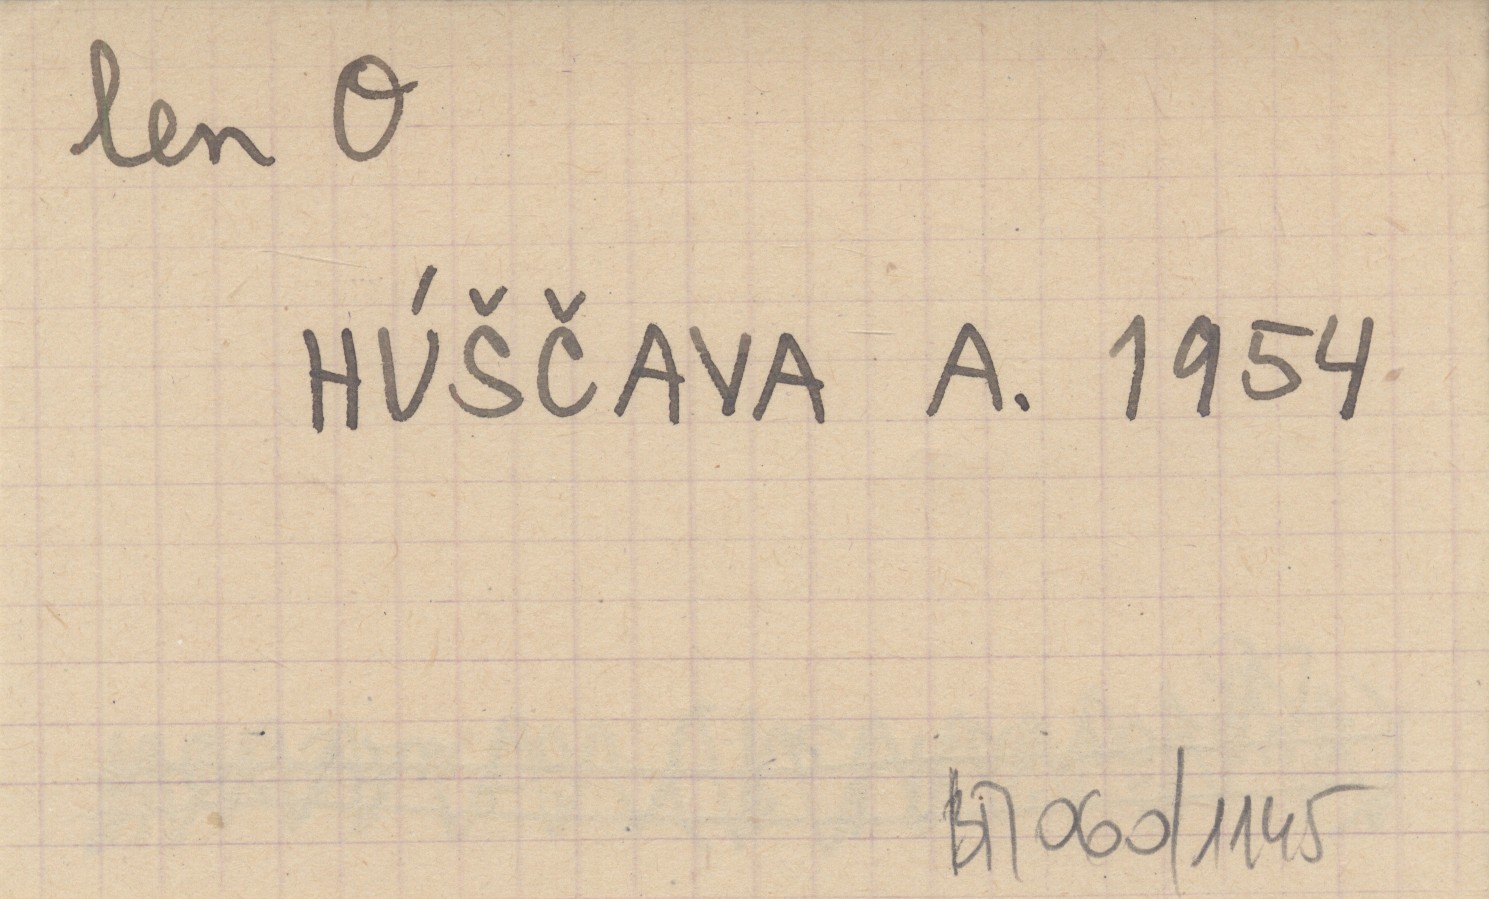 len O
HÚŠČAVA A. 1954
060/1145